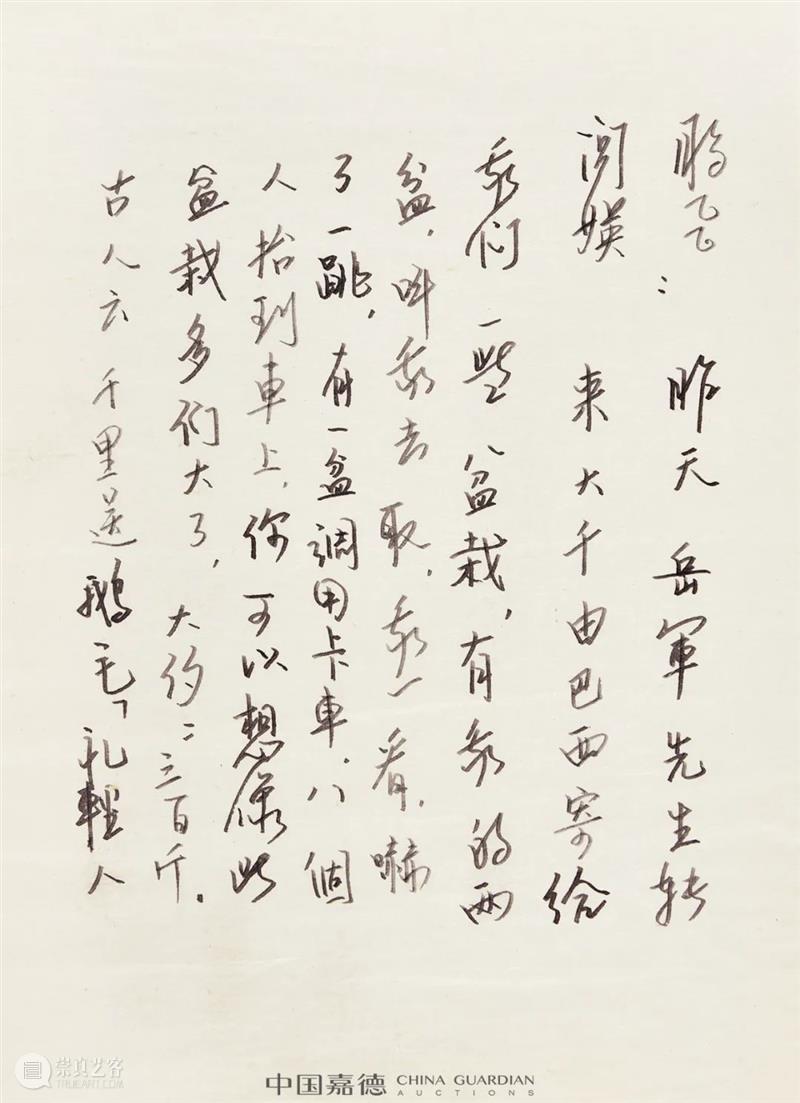 : 昨天 岳軍先生转
来大千由巴西寄给
我们一些盆栽,有我的两
盆,叫我去取,我一看,嚇
了一跳,有一盆調用卡車,八個
人抬到車上,你可以想像此
盆栽多们大了,大约二三百斤。
古人云 千里送鵝毛「礼輕人
中国嘉德 CHINA GUARDIAN
AUCTIONS
崇真艺客
TRUEART.COM